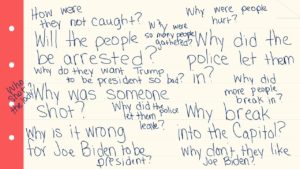 How were
they not caught?
Why were
so many people
gathered?
Why were people
hurt?
Will the people
be arrested?
Why did the
police let them
in?
Why do they want Trump
to be president so bad?
Why did
more people
break in?
Who
Why was someone
shot?
Why did the
police
let them
leave?
Why break
into the Capitol?
Why is it wrong
for Joe Biden to be
president?
Why don't they like
Joe Biden?